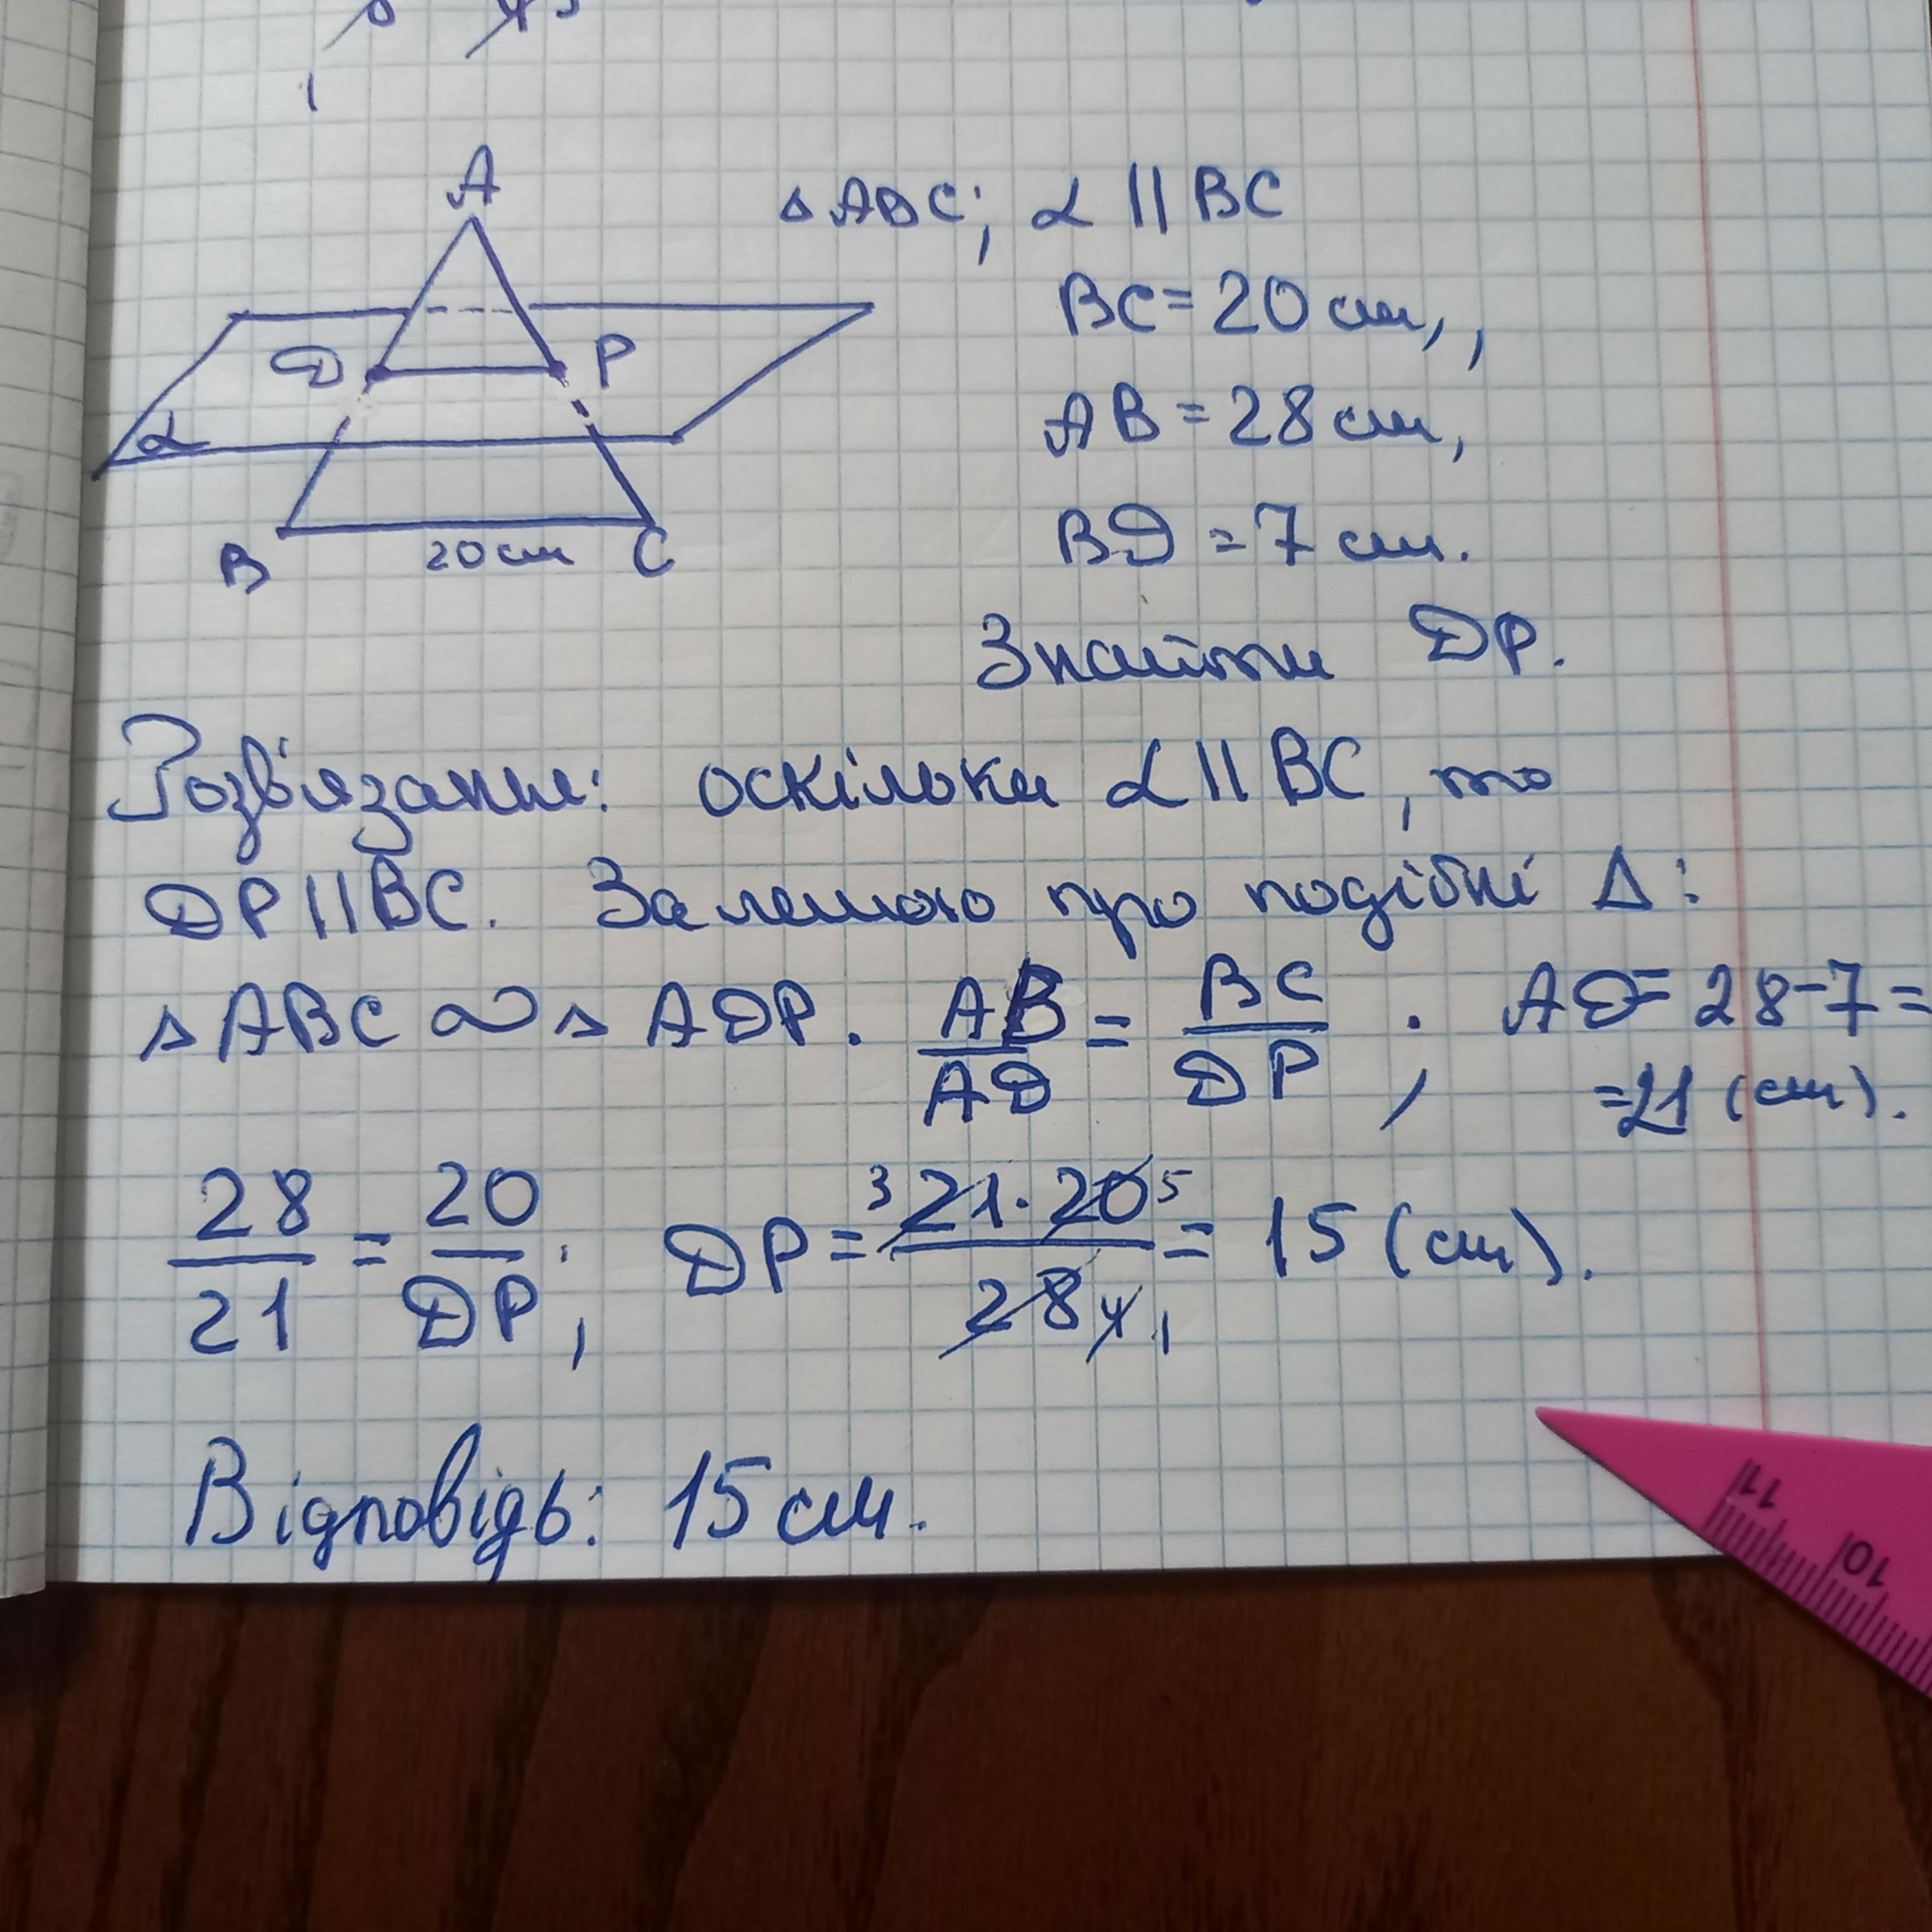 A
△ABC; α || BC
BC = 20 см,,
D P
AB = 28 см,
α
BD = 7 см.
B 20 см C
Знайти DP.
Розв'язання: оскільки α || BC, то
DP || BC. За лемою про подібні Δ:
△ABC ∾ △ADP. AB/AD = BC/DP; AD = 28-7=
=21 (см).
28/21 = 20/DP; DP = 3 21·20 5 / 28 4 1 = 15 (см).
Відповідь: 15 см.
11
10